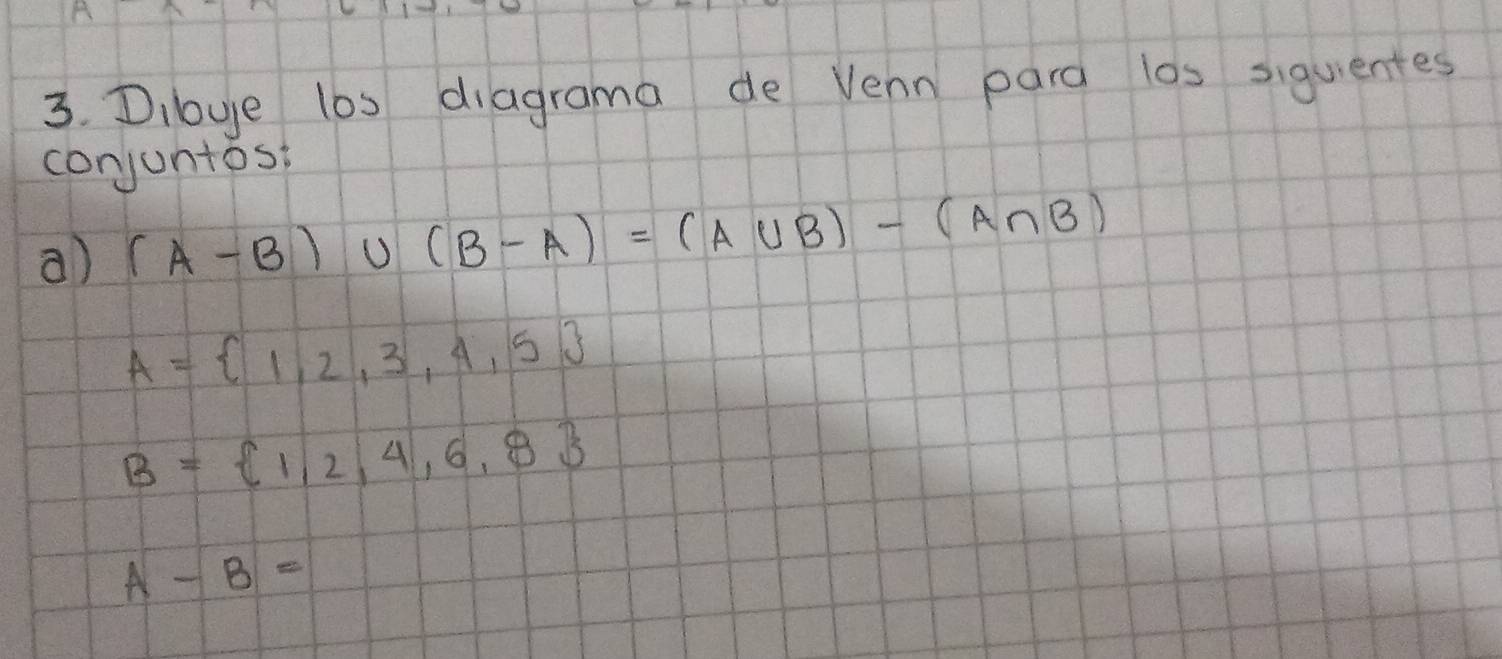 3. Dibuje los diagrama de Venn para los siguientes
conjuntos:
a) (A - B) ∪ (B - A) = (A ∪ B) - (A ∩ B)
A = {1, 2, 3, 4, 5}
B = {1, 2, 4, 6, 8}
A - B =